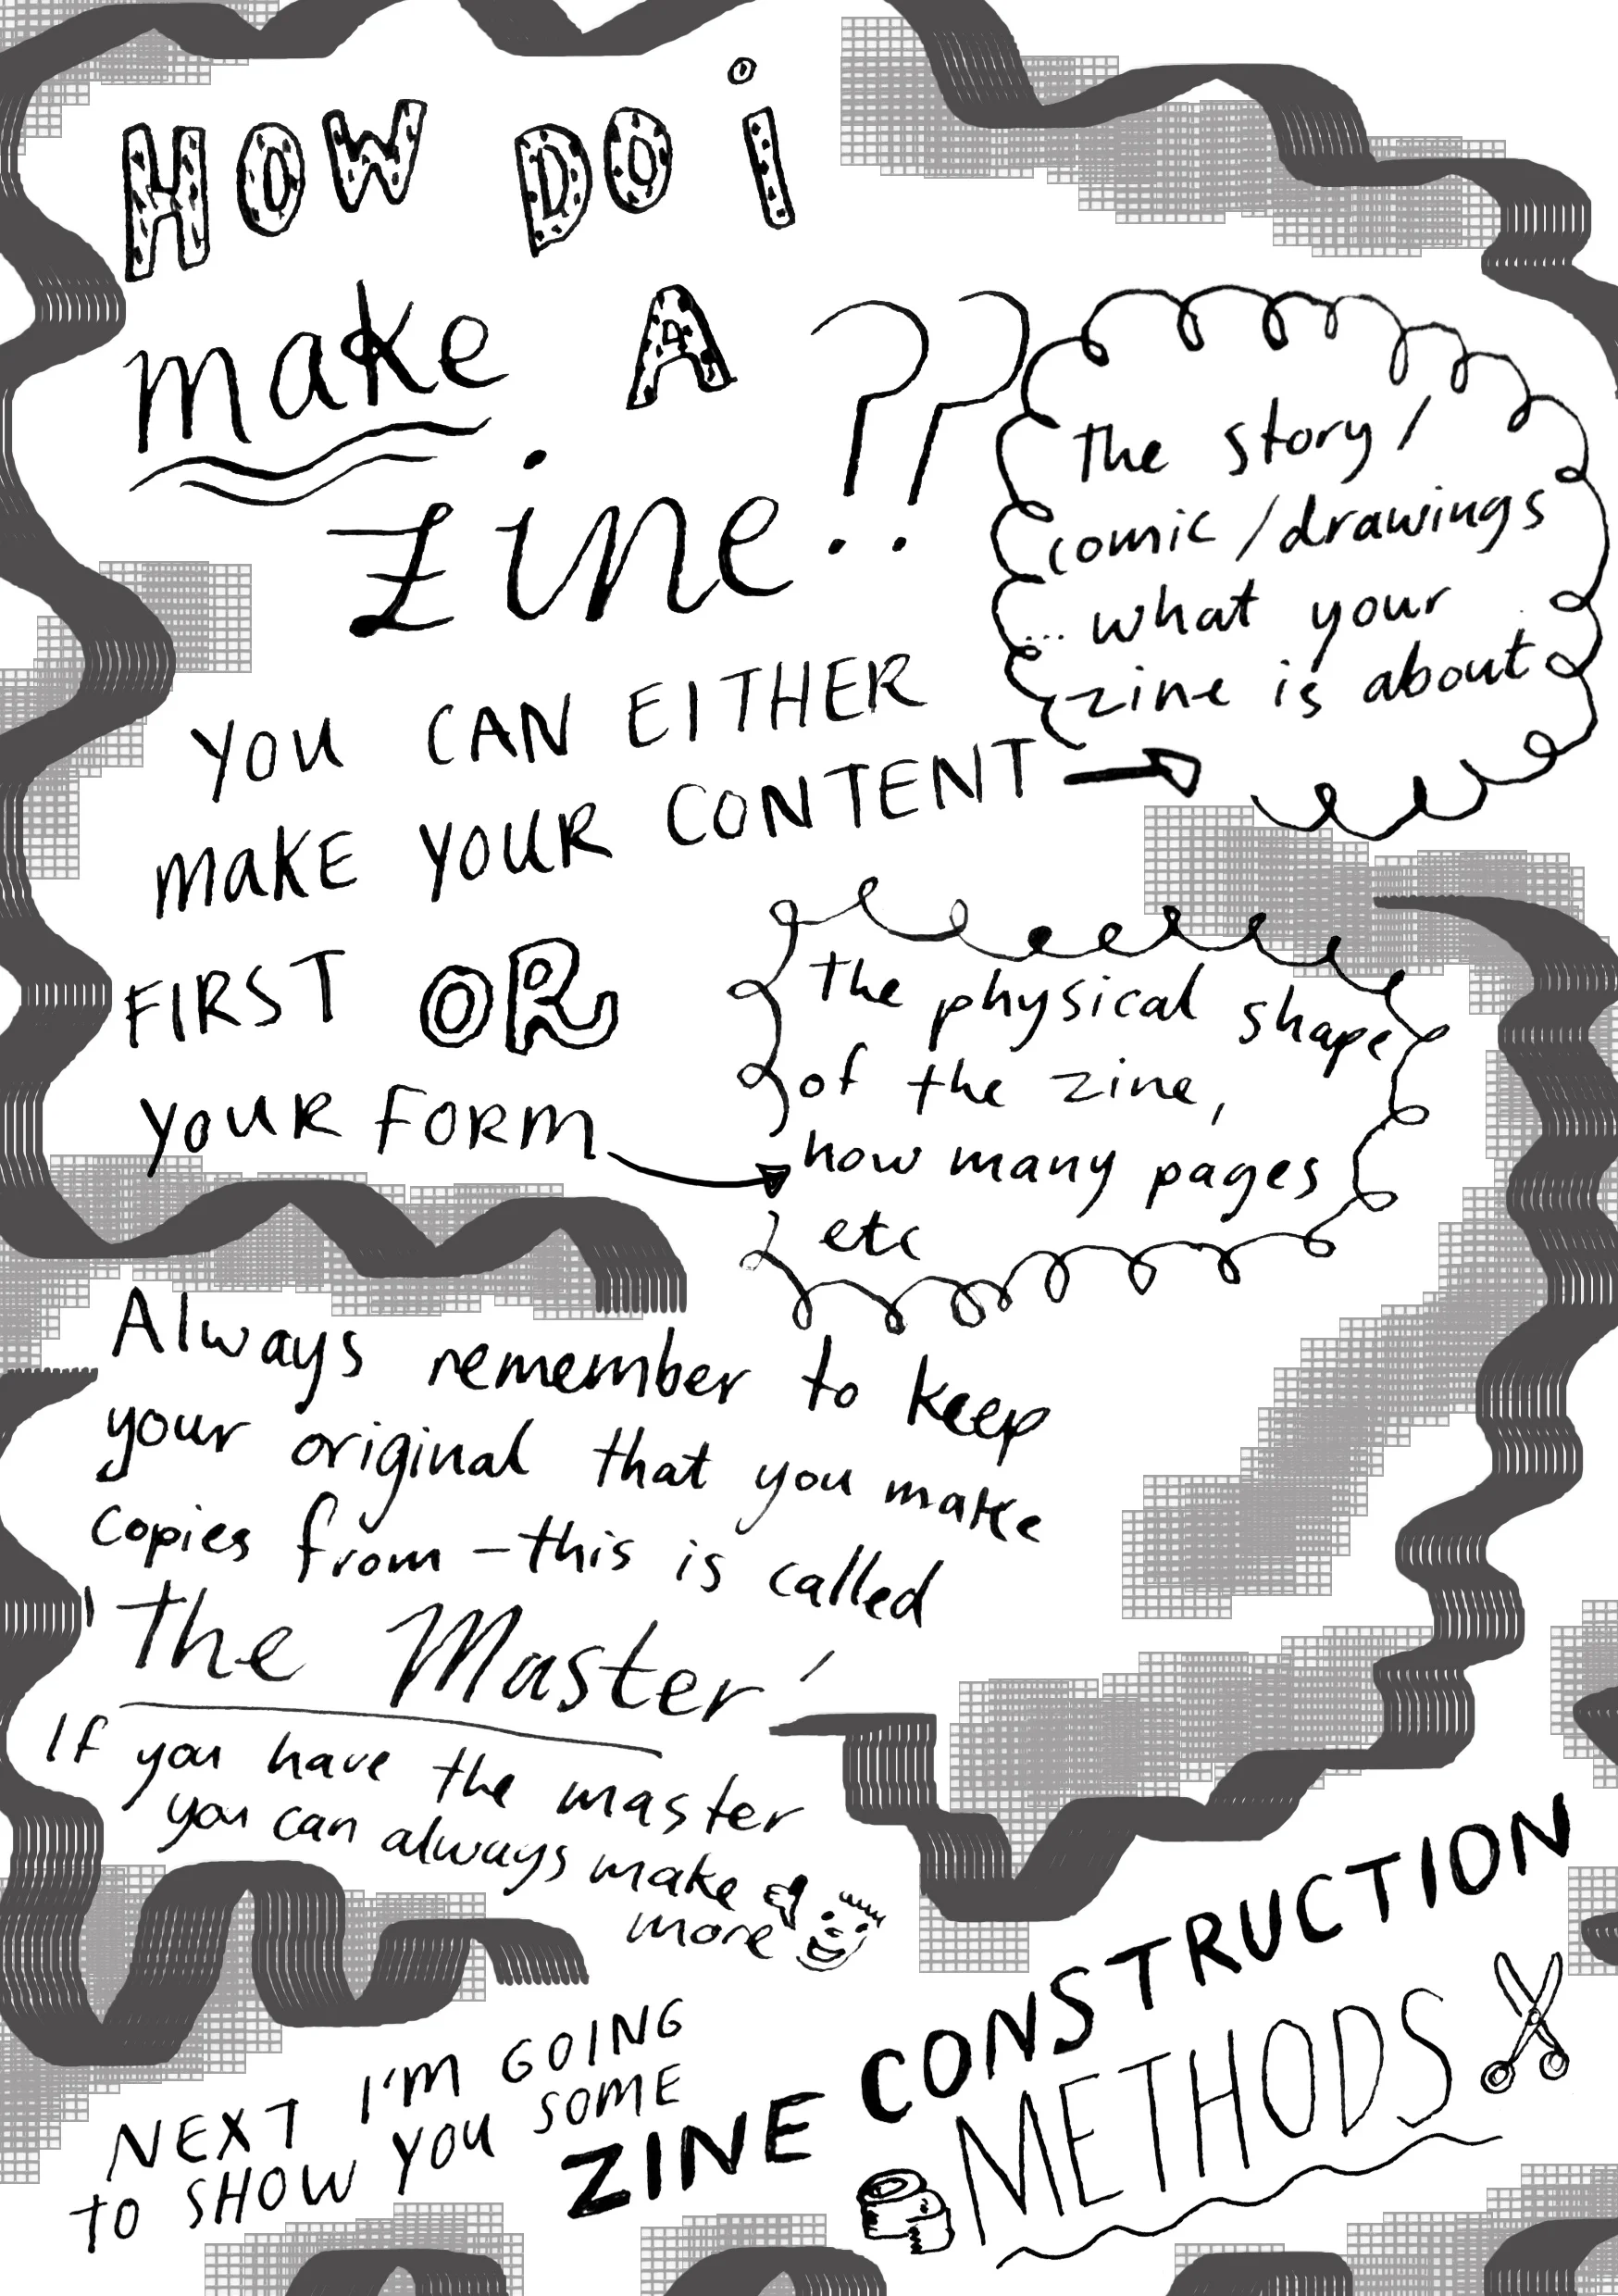 HOW DO i
make A
Zine??
YOU CAN EITHER
MAKE YOUR CONTENT
The story/
comic/drawings
...what your
zine is about
FIRST OR
YOUR FORM
the physical shape
of the zine,
how many pages
etc
Always remember to keep
your original that you make
copies from - this is called
'The Master'
If you have the master
you can always make
more
NEXT I'M GOING
TO SHOW YOU SOME
ZINE CONSTRUCTION
METHODS